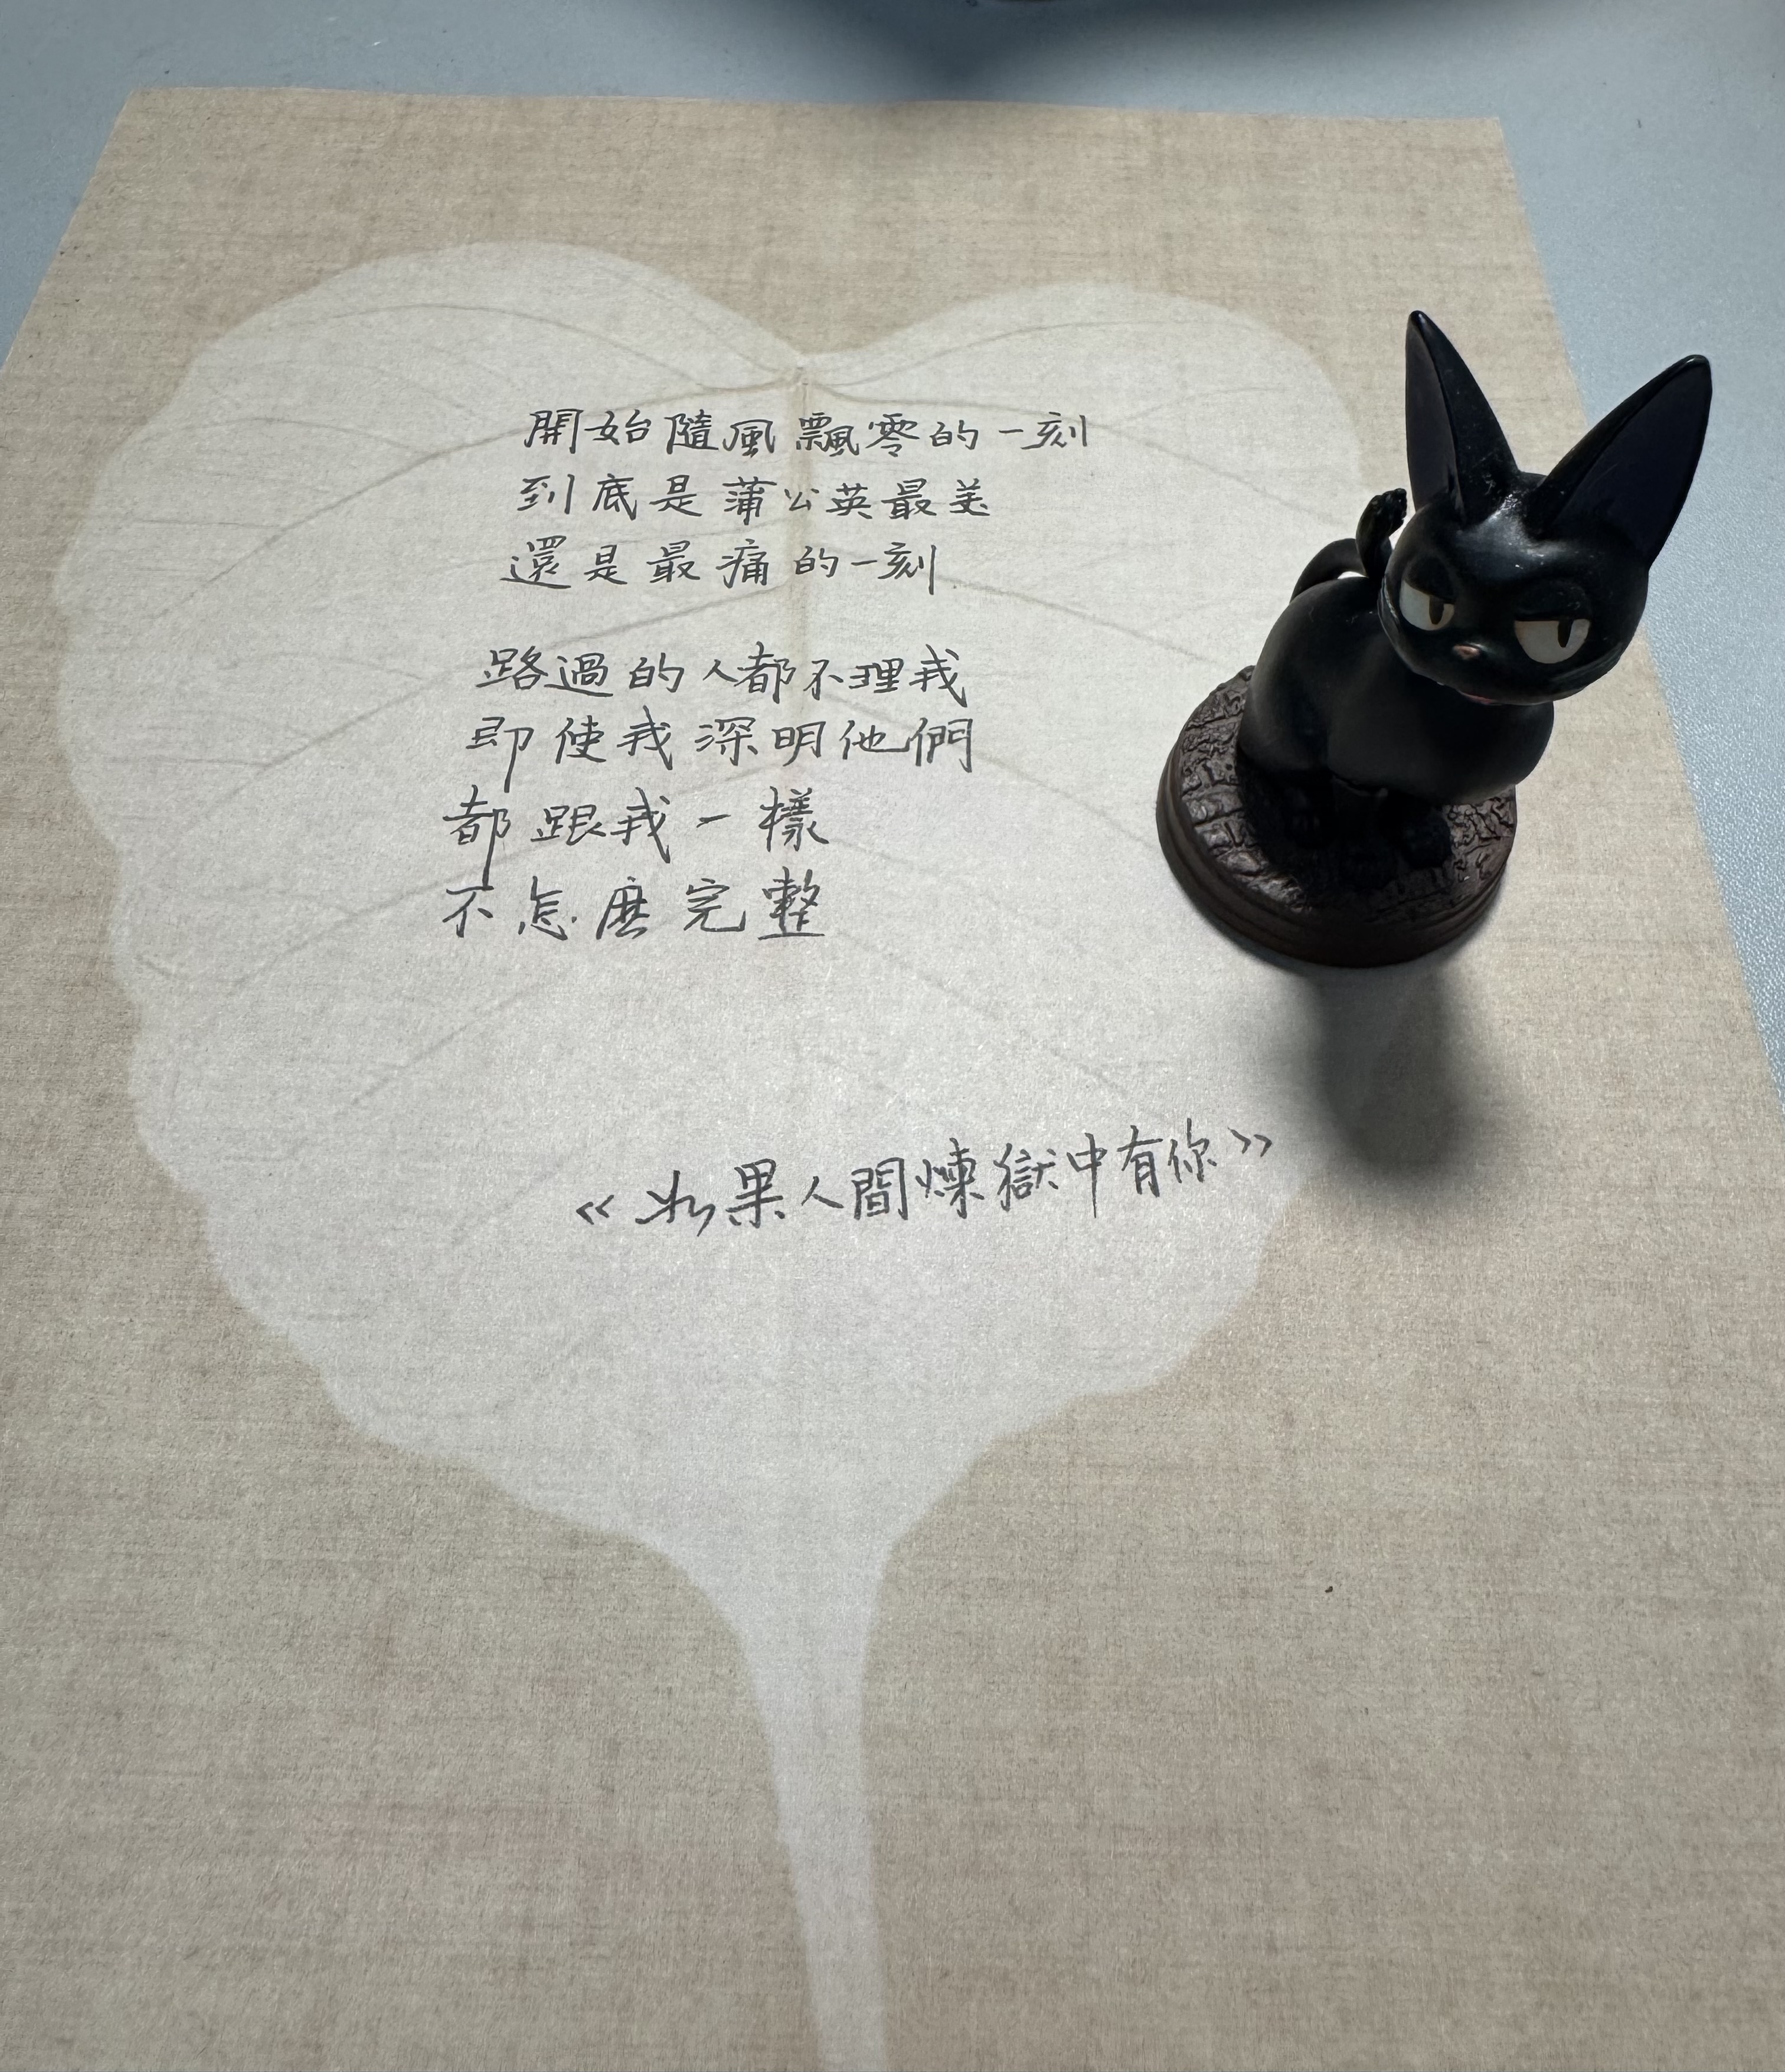 開始隨風飄零的一刻
到底是蒲公英最美
還是最痛的一刻
路過的人都不理我
即使我深明他們
都跟我一樣
不怎麼完整
《如果人間煉獄中有你》